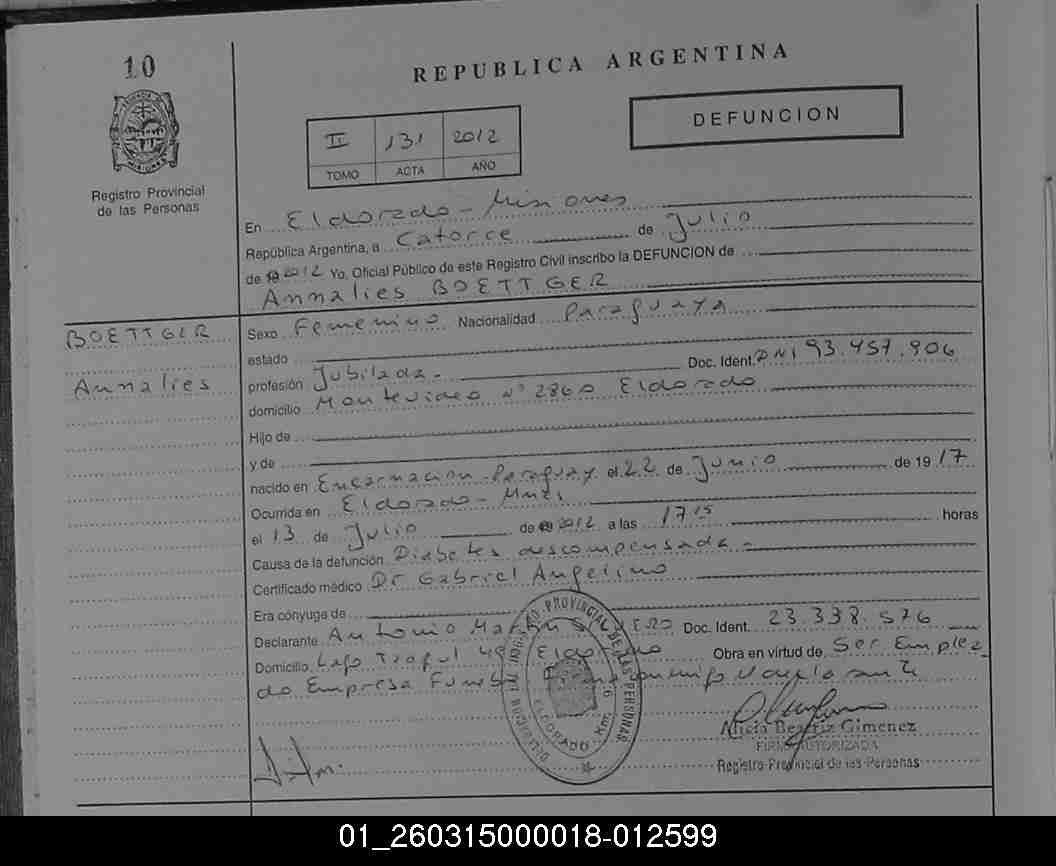 10
REPUBLICA ARGENTINA
DEFUNCION
II 131 2012
TOMO ACTA AÑO
Registro Provincial
de las Personas
En Eldorado - Misiones
República Argentina, a Catorce de Julio
de 2012 Yo, Oficial Público de este Registro Civil inscribo la DEFUNCION de
Annalies BOETTGER
BOETTGER
Annalies
Sexo Femenino Nacionalidad Paraguaya
estado
profesión Jubilada.- Doc. Ident. DNI 93.957.906
domicilio Montevideo Nº 2860 Eldorado
Hijo de
y de
nacido en Encarnacion-Paraguay el 22 de Junio de 1917
Ocurrida en Eldorado - Mnes
el 13 de Julio de 2012 a las 17 15 horas
Causa de la defunción Diabetes descompensada -
Certificado médico Dr Gabriel Angelino
Era cónyuge de
Declarante Antonio Doc. Ident. 23.338.576
Domicilio Lago Obra en virtud de Ser Emplea
do Empresa
DIRECCION REGISTRO PROVINCIAL DE LAS PERSONAS
ELDORADO Km.
Alicia Beatriz Gimenez
FIRMA AUTORIZADA
Registro Provincial de las Personas
01_260315000018-012599